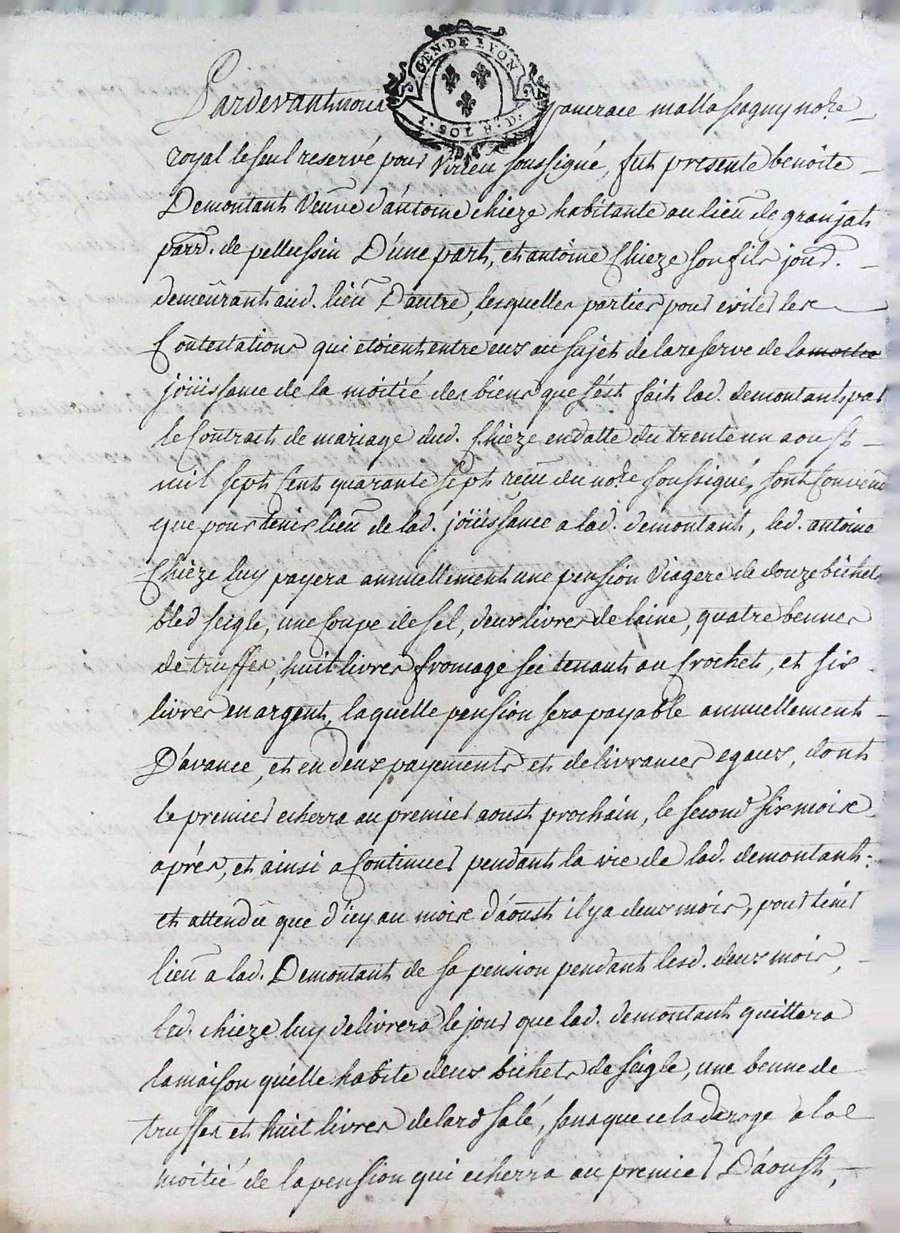 GEN. DE LYON
1. SOL. 8. D.
Pardevant nous pancrace mallassagny nore
royal le seul reservé pour Virieu soussigné, fut presente benoite
Demontant Veuve d'antoine chieze habitante au lieu de granjats
parr. de pellussin D'une part, et antoine Chieze son fils jour.
demeurant aud. lieu D'autre, lesquelles parties pour eviter les
Contestations qui etoient entre eux au sujet de la reserve de la moitie
joüissance de la moitié des biens que s'est fait lad. demontant, par
le Contract de mariage dud. Chieze en datte du trente un aoust
mil sept Cent quarante sept recu du nore soussigné, sont Convenu
que pour tenir lieu de lad. joüissance a lad. demontant, led. antoine
Chieze luy payera annuellement une pension Viagere de douze bichets
bled seigle, une Coupe de sel, deux livres de laine, quatre bennes
de truffes, huit livres fromage sec tenant au Crochet, et six
livres en argent, laquelle pension sera payable annuellement
D'avance, et en deux payements et delivrances egaux, dont
le premier echerra au premier aoust prochain, le second six mois
après, et ainsi a Continuer pendant la vie de lad. demontant:
et attendu que d'icy au mois d'aoust il y a deux mois, pour tenir
lieu a lad. Demontant de sa pension pendant lesd. deux mois,
led. chieze luy delivrera le jour que lad. demontant quittera
la maison qu'elle habite deux bichets de seigle, une benne de
truffes et huit livres de lard salé, sans que cela deroge a la
moitié de la pension qui echerra au premier D'aoust,